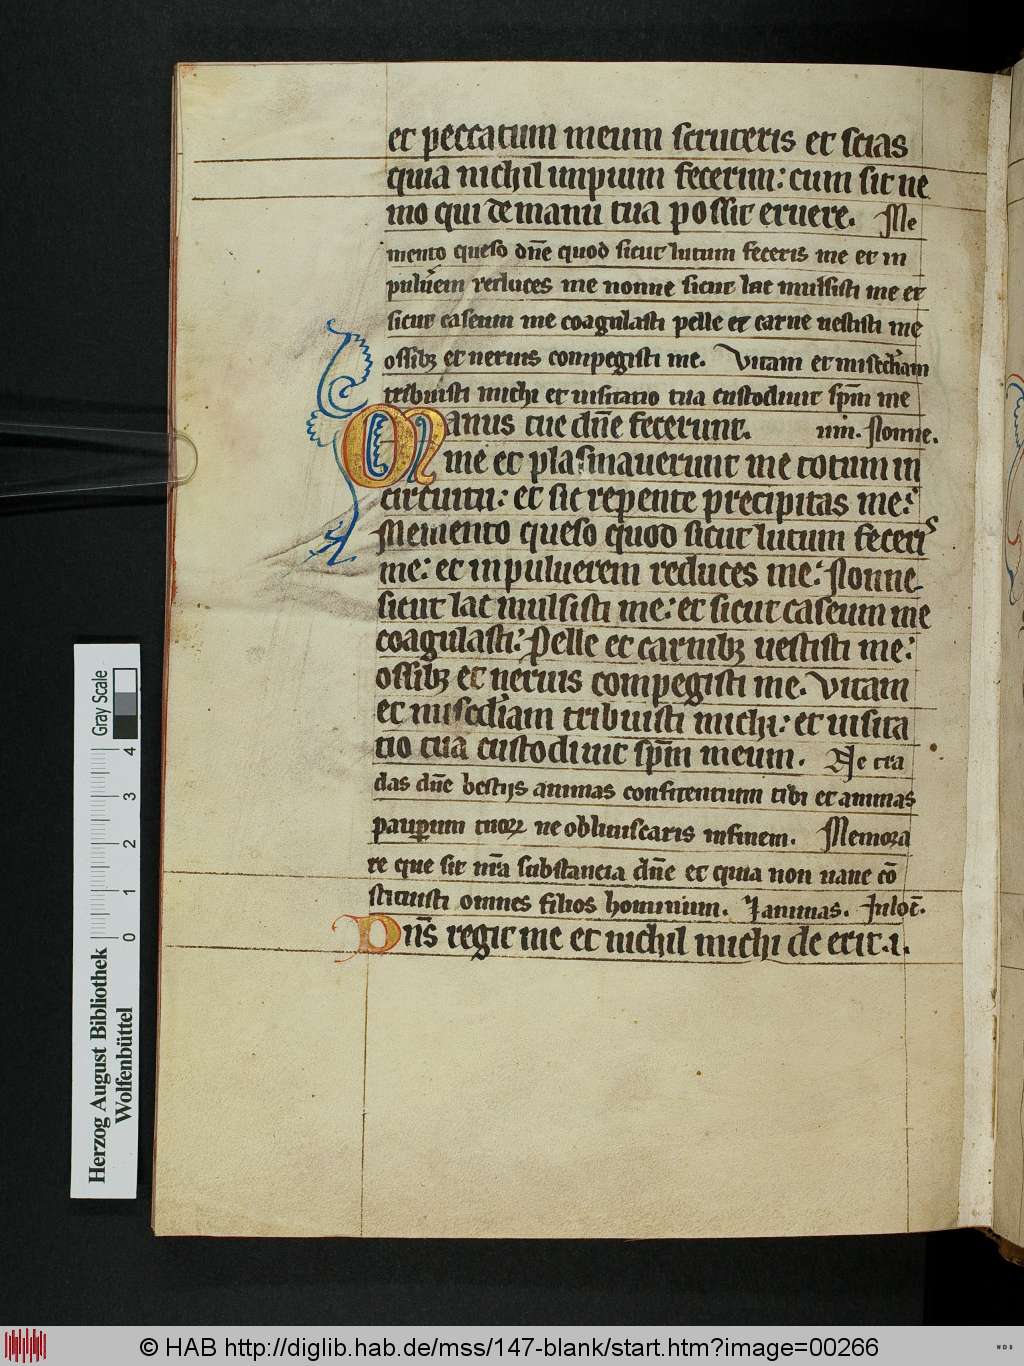 et peccatum meum scruteris et scias
quia nichil impium fecerim: cum sit ne
mo qui de manu tua possit eruere. Me
mento queso dn̄e quod sicut lutum feceris me et in
puluem reduces me nonne sicut lac mulsisti me et
sicut caseum me coagulasti pelle et carne uestisti me
ossibꝫ et neruis compegisti me. Vitam et misediam
tribuisti michi et uisitatio tua custodiuit sp̄m me
Manus tue dn̄e fecerunt. iiii. Nonne.
me et plasmauerunt me totum in
circuitu: et sic repente precipitas me:
Memento queso quod sicut lutum feceris
me: et in puluerem reduces me: Nonne
sicut lac mulsisti me: et sicut caseum me
coagulasti: Pelle et carnibꝫ uestisti me:
ossibꝫ et neruis compegisti me. Vitam
et misediam tribuisti michi: et uisita
tio tua custodiuit sp̄m meum. Ne tra
das dn̄e bestijs animas confitentium tibi et animas
pauꝑum tuoꝝ ne obliuiscaris infinem. Memora
re que sit nr̄a substancia dn̄e et quia non uane cō
stituisti omnes filios hominum. animas. In loc̄.
Dn̄s regit me et nichil michi de erit. i.
Herzog August Bibliothek
Wolfenbüttel
0 1 2 3 4
Gray Scale
© HAB http://diglib.hab.de/mss/147-blank/start.htm?image=00266